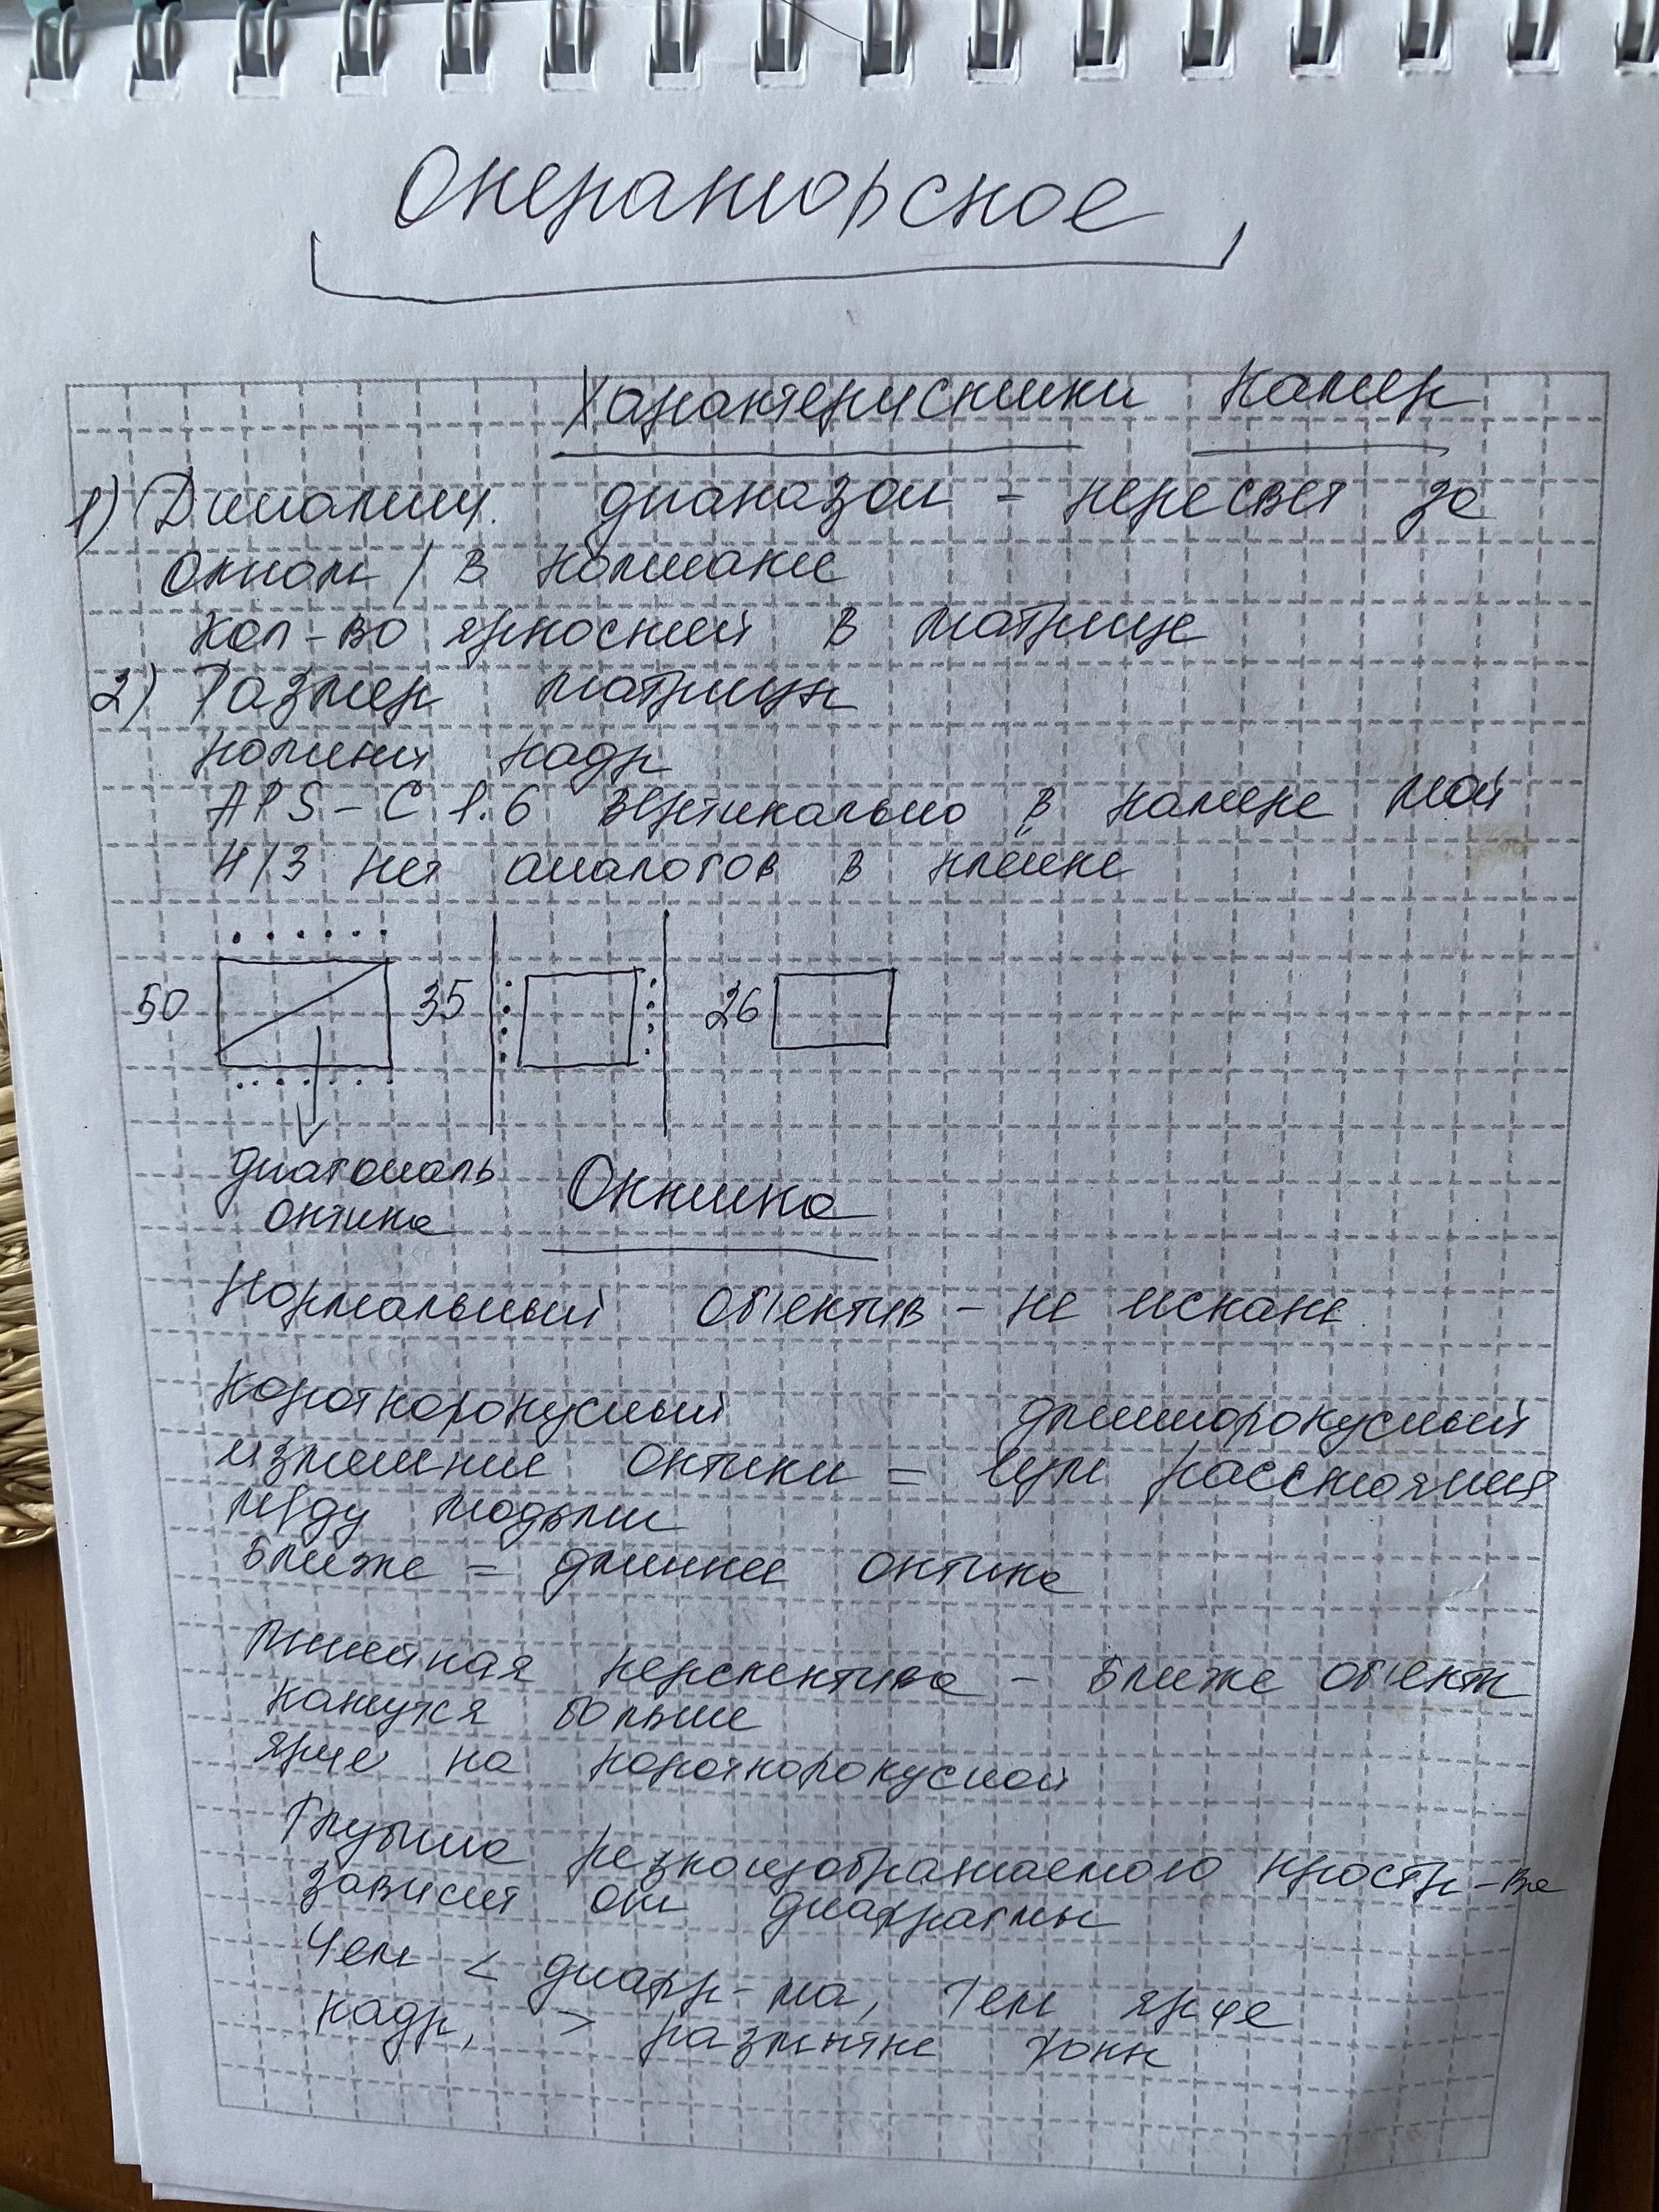 Операторское
Характеристики камер
1) Динамич. диапазон - пересвет за
окном / в комнате
кол-во яркостей в матрице
2) Размер матрицы
полный кадр
APS-C 1.6 вертикально в камере мой
4/3 нет аналогов в плёнке
50 35 26
диагональ
оптика
Оптика
Нормальный объектив - не искаж.
Короткофокусный длиннофокусный
изменение оптики = изм расстояния
между людьми
ближе = длиннее оптика
Линейная перспектива - ближе объекты
кажутся больше
ярче на короткофокусной
Глубина резкоизображаемого простр-ва
зависит от диафрагмы
Чем < диафр-ма, тем ярче
кадр, > размытие фона